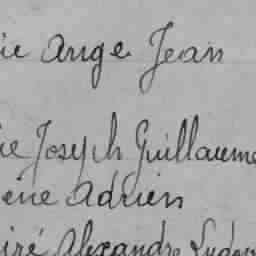 ie Ange Jean
ie Joseph Guillaume
ène Adrien
iré Alexandre Ludov